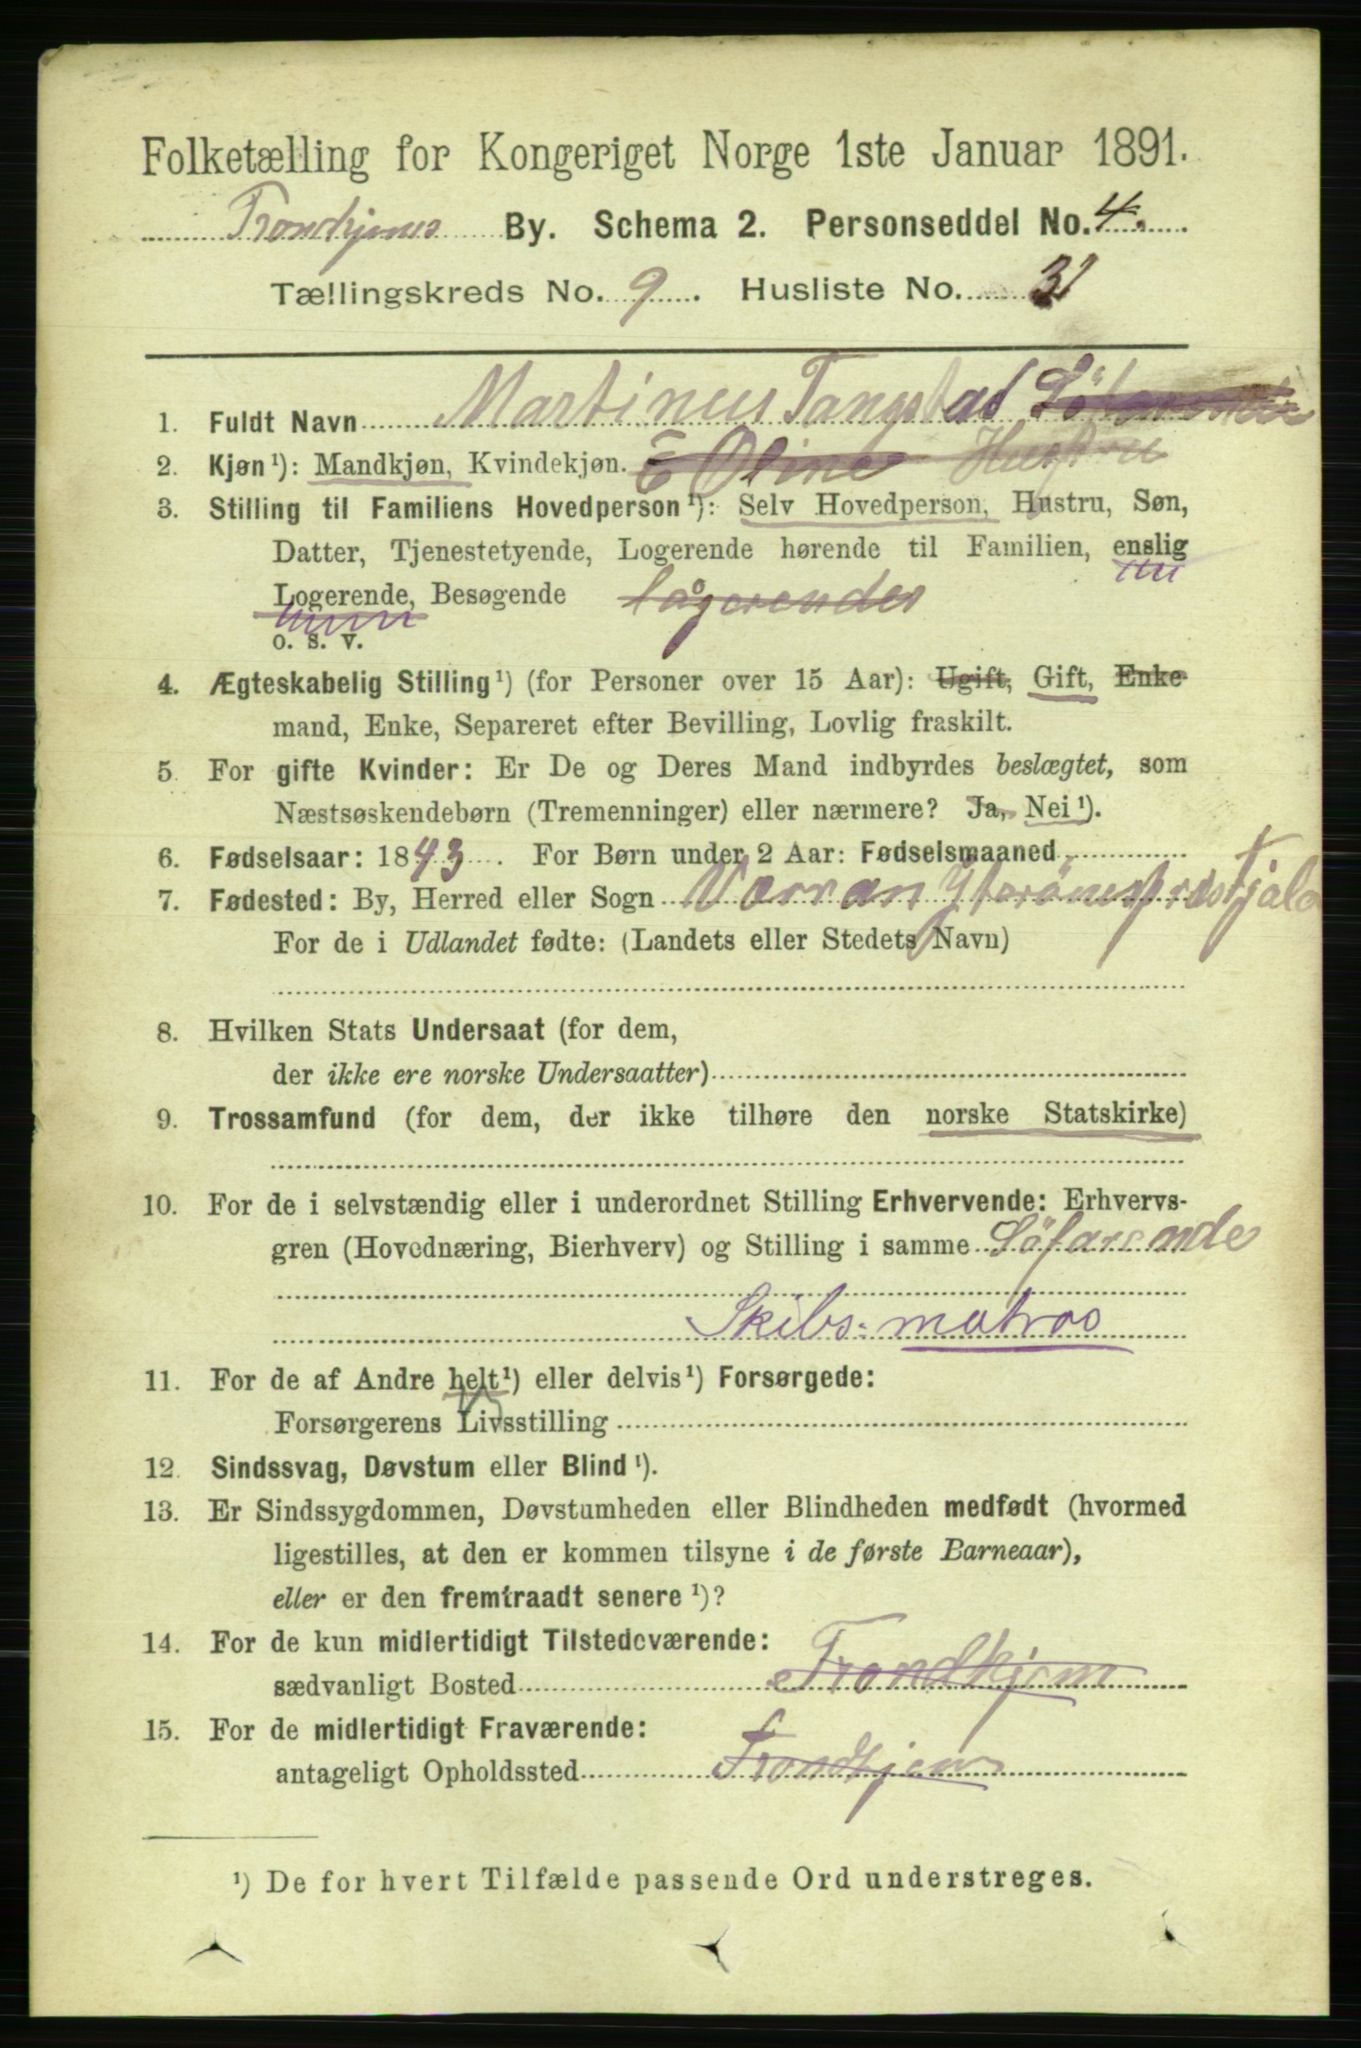 Folketælling for Kongeriget Norge 1ste Januar 1891.
Trondhjems By. Schema 2. Personseddel No. 4.
Tællingskreds No. 9. Husliste No. 31
1. Fuldt Navn Martinus Tangstad
2. Kjøn ¹): Mandkjøn, Kvindekjøn. E Oline Hustru
3. Stilling til Familiens Hovedperson ¹): Selv Hovedperson, Hustru, Søn,
Datter, Tjenestetyende, Logerende hørende til Familien, enslig
Logerende, Besøgende lågerendes
o. s. v.
4. Ægteskabelig Stilling ¹) (for Personer over 15 Aar): Ugift, Gift, Enke-
mand, Enke, Separeret efter Bevilling, Lovlig fraskilt.
5. For gifte Kvinder: Er De og Deres Mand indbyrdes beslægtet, som
Næstsøskendebørn (Tremenninger) eller nærmere? Ja, Nei ¹).
6. Fødselsaar: 1843. For Børn under 2 Aar: Fødselsmaaned
7. Fødested: By, Herred eller Sogn Værran Yterönes præstjæld
For de i Udlandet fødte: (Landets eller Stedets Navn)
8. Hvilken Stats Undersaat (for dem,
der ikke ere norske Undersaatter)
9. Trossamfund (for dem, der ikke tilhøre den norske Statskirke)
10. For de i selvstændig eller i underordnet Stilling Erhvervende: Erhvervs-
gren (Hovednæring, Bierhverv) og Stilling i samme Söfarende
Skibs-matros
11. For de af Andre helt ¹) eller delvis ¹) Forsørgede:
Forsørgerens Livsstilling
12. Sindssvag, Døvstum eller Blind ¹).
13. Er Sindssygdommen, Døvstumheden eller Blindheden medfødt (hvormed
ligestilles, at den er kommen tilsyne i de første Barneaar),
eller er den fremtraadt senere ¹)?
14. For de kun midlertidigt Tilstedeværende:
sædvanligt Bosted Trondhjem
15. For de midlertidigt Fraværende:
antageligt Opholdssted Trondhjem
¹) De for hvert Tilfælde passende Ord understreges.